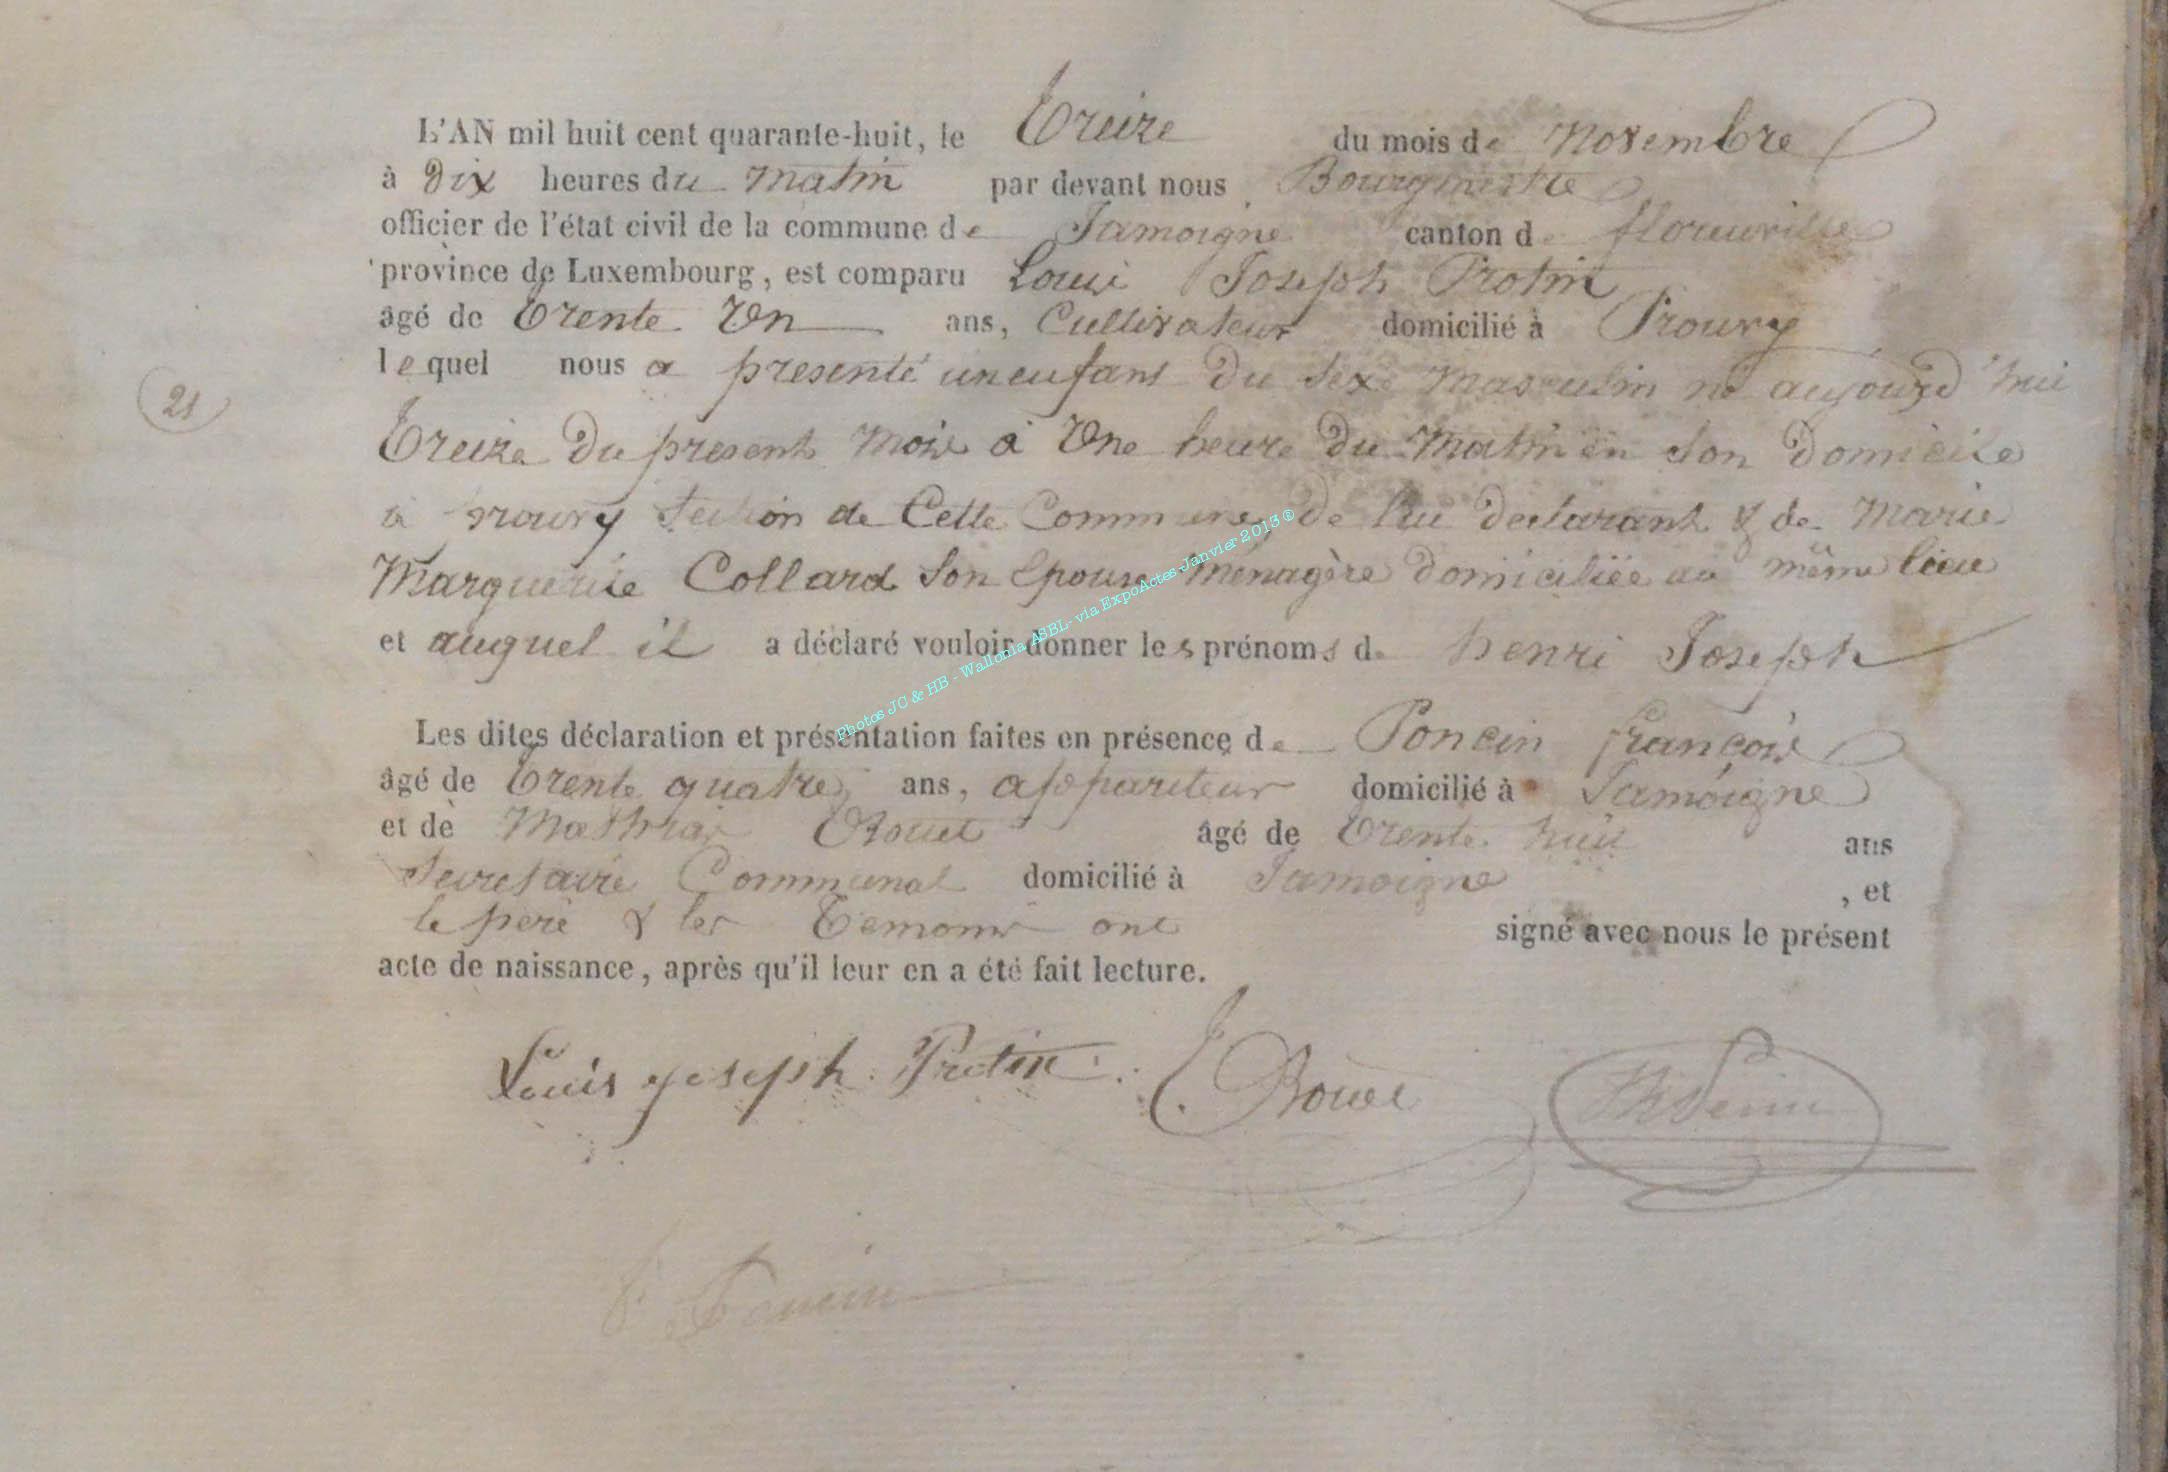 L'AN mil huit cent quarante-huit, le Treize du mois de Novembre
à Dix heures du Matin par devant nous Bourgmestre
officier de l'état civil de la commune de Jamoigne canton de florenville
province de Luxembourg, est comparu Louis Joseph Protin
âgé de Trente Un ans, Cultivateur domicilié à Prouvy
lequel nous a presenté un enfant Du sexe Masculin né aujourd'hui
21
Treize Du present Mois à Une heure Du Matin en Son Domicile
à prouvy Section de Cette Commune, de lui declarant & de Marie
Marguerite Collard Son Epouse Ménagère domiciliée au même lieu
et auquel il a déclaré vouloir donner les prénoms de henri Joseph
Les dites déclaration et présentation faites en présence de Poncin françois
âgé de Trente quatre ans, appariteur domicilié à Jamoigne
et de Mathias Rouet âgé de Trente huit ans
Secretaire Communal domicilié à Jamoigne , et
le pere & les Temoins ont signé avec nous le présent
acte de naissance, après qu'il leur en a été fait lecture.
Louis joseph Protin
Poncin
Photos JC & HB - Wallonia ASBL- via ExpoActes-Janvier 2013 ®